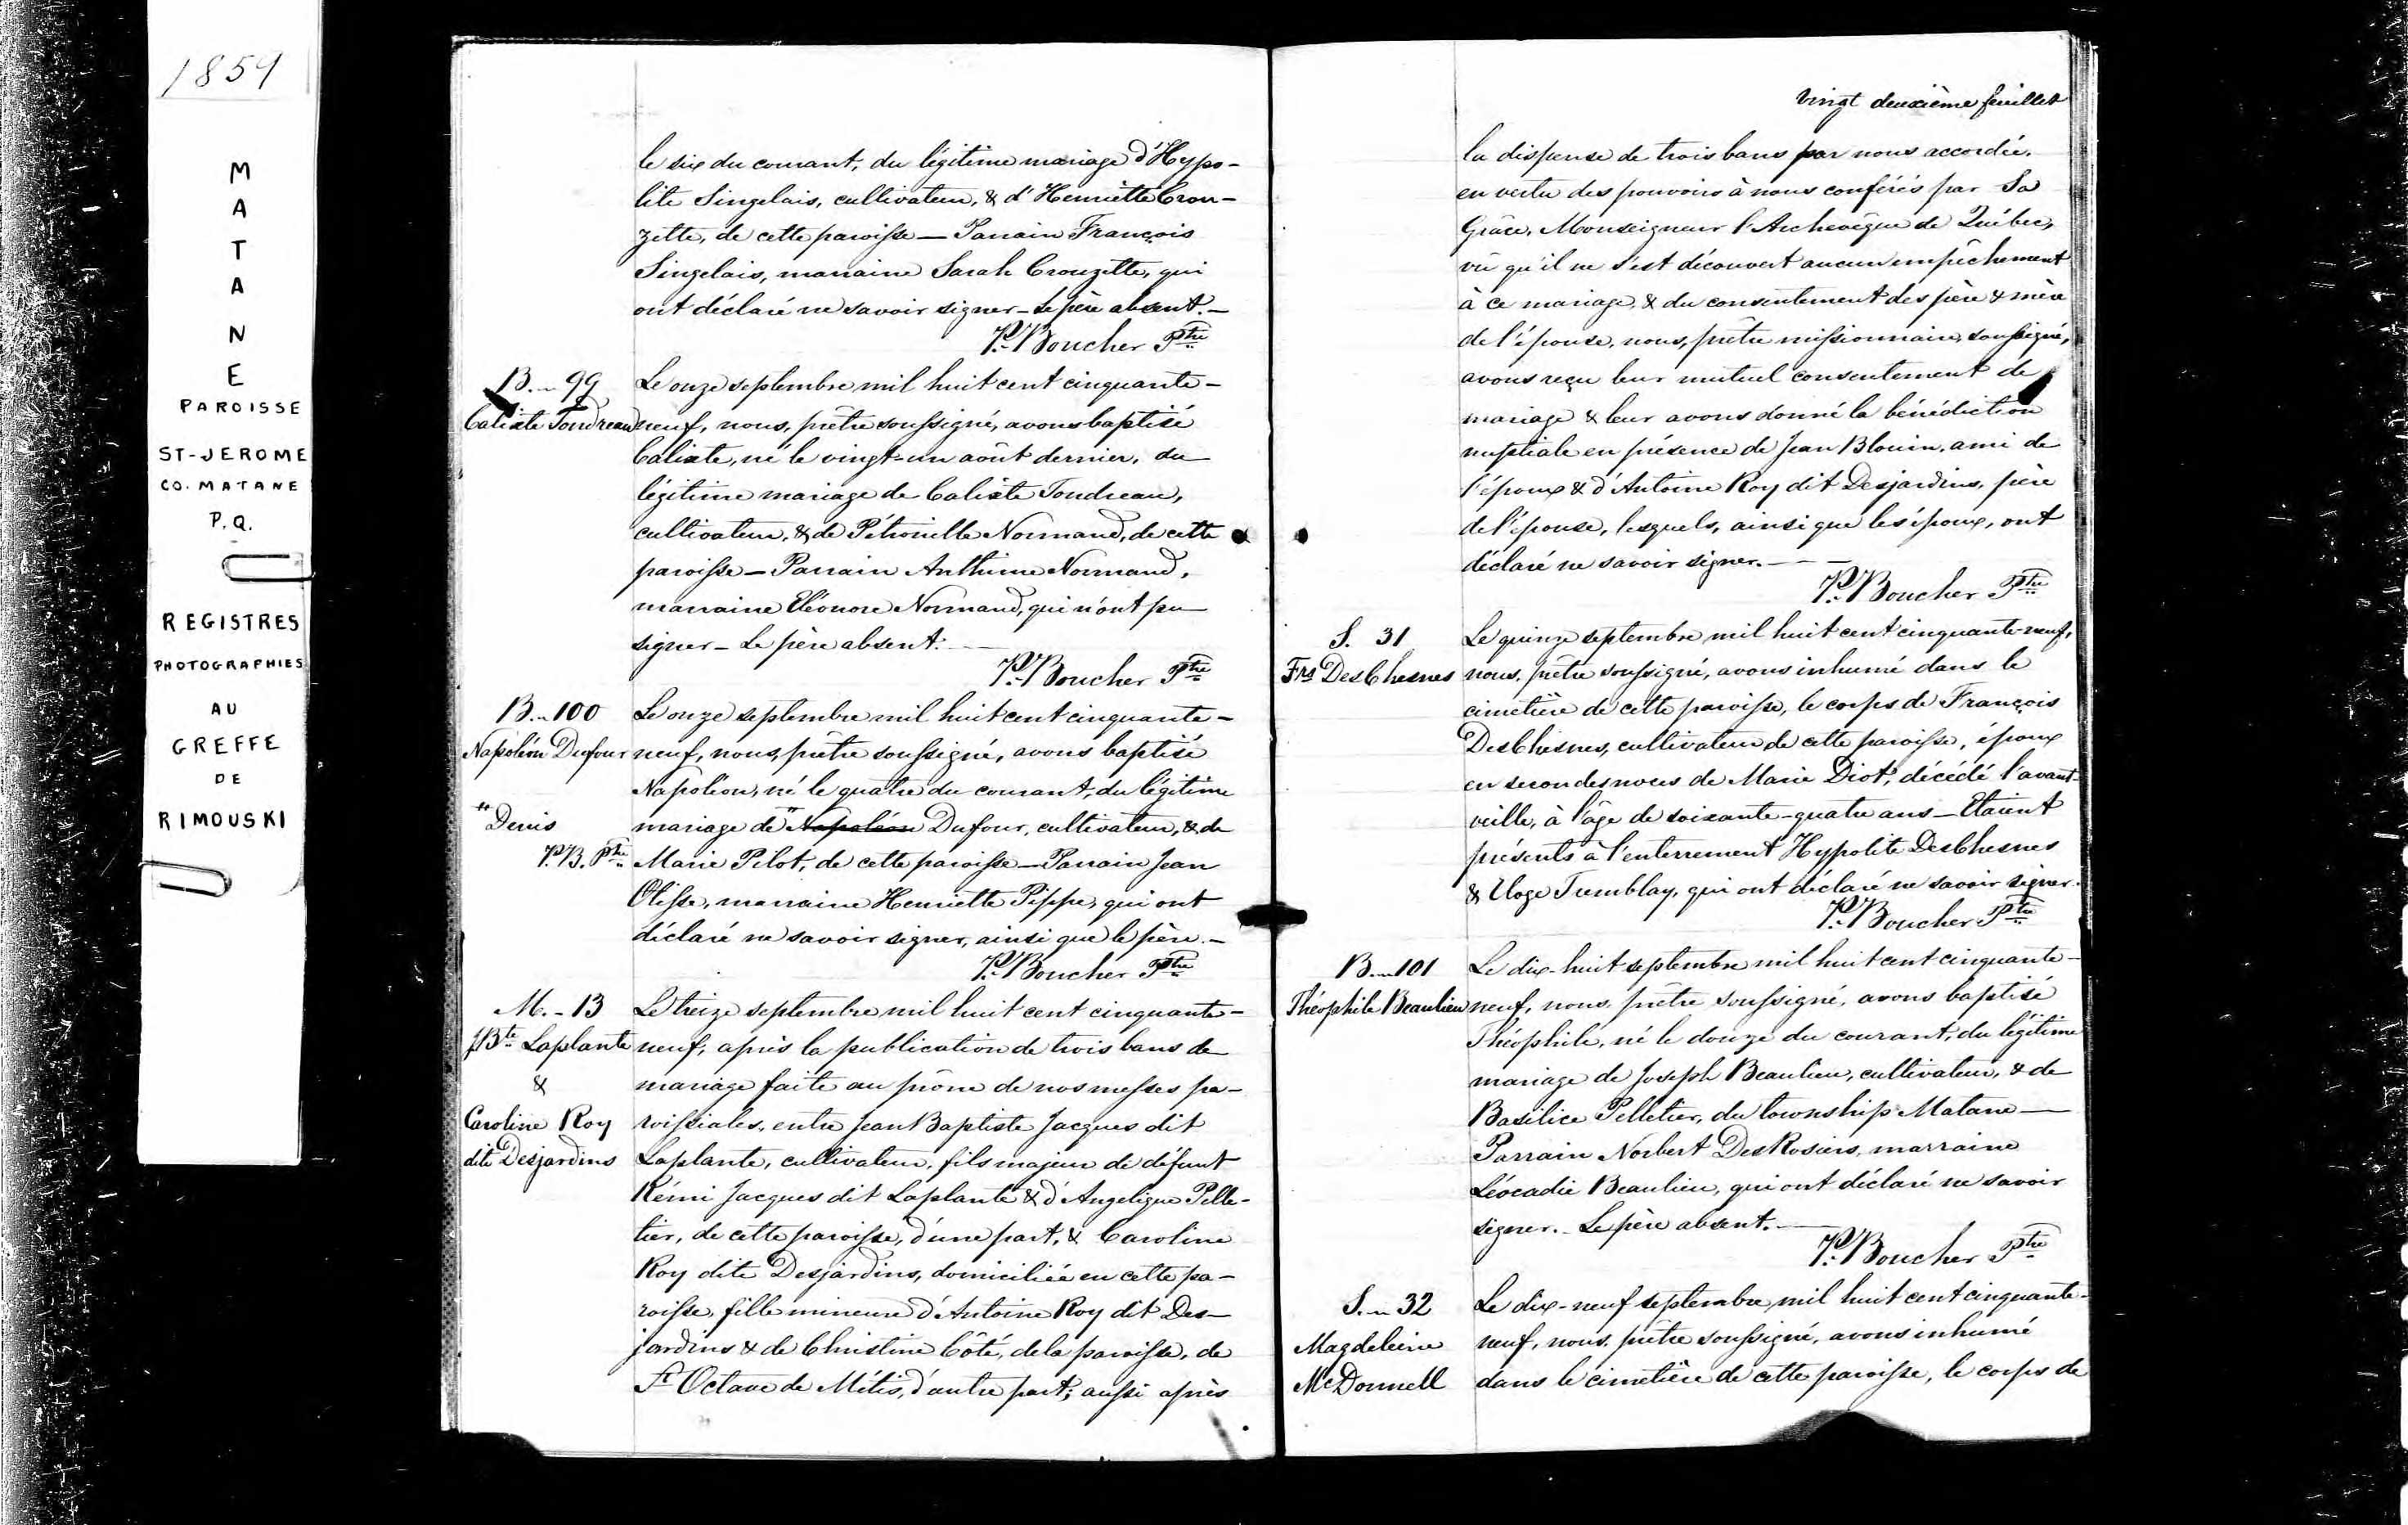 1859
M
A
T
A
N
E
PAROISSE
ST-JEROME
CO. MATANE
P.Q.
REGISTRES
PHOTOGRAPHIES
AU
GREFFE
DE
RIMOUSKI
le six du courant, du légitime mariage d'Hypo-
lite Singelais, cultivateur, & d'Henriette Crou-
zette, de cette paroisse — Parrain François
Singelais, marraine Sarah Crouzette, qui
ont déclaré ne savoir signer — Le père absent. —
P. Boucher Ptre
B. 99
Calixte Toudreau
Le onze septembre mil huit cent cinquante-
neuf, nous, prêtre soussigné, avons baptisé
Calixte, né le vingt-un août dernier, du
légitime mariage de Calixte Toudreau,
cultivateur, & de Pétronille Normand, de cette
paroisse — Parrain Anthime Normand,
marraine Eléonore Normand, qui n'ont pu
signer — Le père absent. —
P. Boucher Ptre
B. 100
Napoléon Dufour
Le onze septembre mil huit cent cinquante-
neuf, nous, prêtre soussigné, avons baptisé
Napoléon, né le quatre du courant, du légitime
mariage de " Napoléon Dufour, cultivateur, & de
" Denis
P.B. Ptre
Marie Pilot, de cette paroisse — Parrain Jean
Olisse, marraine Henriette Pippe, qui ont
déclaré ne savoir signer, ainsi que le père. —
P. Boucher Ptre
M. - 13
J Bte Laplante
&
Caroline Roy
dite Desjardins
Le treize septembre mil huit cent cinquante-
neuf, après la publication de trois bans de
mariage faite au prône de nos messes pa-
roissiales, entre Jean Baptiste Jacques dit
Laplante, cultivateur, fils majeur de défunt
Rémi Jacques dit Laplante & d'Angelique Pelle-
tier, de cette paroisse, d'une part, & Caroline
Roy dite Desjardins, domiciliée en cette pa-
roisse, fille mineure d'Antoine Roy dit Des-
jardins & de Christine Côté, de la paroisse, de
St Octave de Métis, d'autre part; aussi après
vingt deuxième feuillet
la dispense de trois bans par nous accordée,
en vertu des pouvoirs à nous conférés par Sa
Grâce, Monseigneur l'Archevêque de Québec,
vû qu'il ne s'est découvert aucun empêchement
à ce mariage, & du consentement des père & mère
de l'épouse, nous, prêtre missionnaire, soussigné,
avons reçu leur mutuel consentement de
mariage & leur avons donné la bénédiction
nuptiale en présence de Jean Blouin, ami de
l'époux & d'Antoine Roy dit Desjardins, père
de l'épouse, lesquels, ainsi que les époux, ont
déclaré ne savoir signer. —
P. Boucher Ptre
S. 31
Frs DesChesnes
Le quinze septembre mil huit cent cinquante-neuf,
nous, prêtre soussigné, avons inhumé dans le
cimetière de cette paroisse, le corps de François
DesChesnes, cultivateur de cette paroisse, époux
en secondes noces de Marie Diot, décédé l'avant-
veille, à l'âge de soixante-quatre ans — Etaient
présents à l'enterrement Hypolite DesChesnes
& Eloge Tremblay, qui ont déclaré ne savoir signer.
P. Boucher Ptre
B. 101
Théophile Beaulieu
Le dix-huit septembre mil huit cent cinquante-
neuf, nous, prêtre soussigné, avons baptisé
Théophile, né le douze du courant, du légitime
mariage de Joseph Beaulieu, cultivateur, & de
Basilice Pelletier, du township Matane —
Parrain Norbert DesRosiers, marraine
Léocadie Beaulieu, qui ont déclaré ne savoir
signer. — Le père absent. —
P. Boucher Ptre
S. 32
Magdeleine
McDonnell
Le dix-neuf septembre mil huit cent cinquante-
neuf, nous, prêtre soussigné, avons inhumé
dans le cimetière de cette paroisse, le corps de